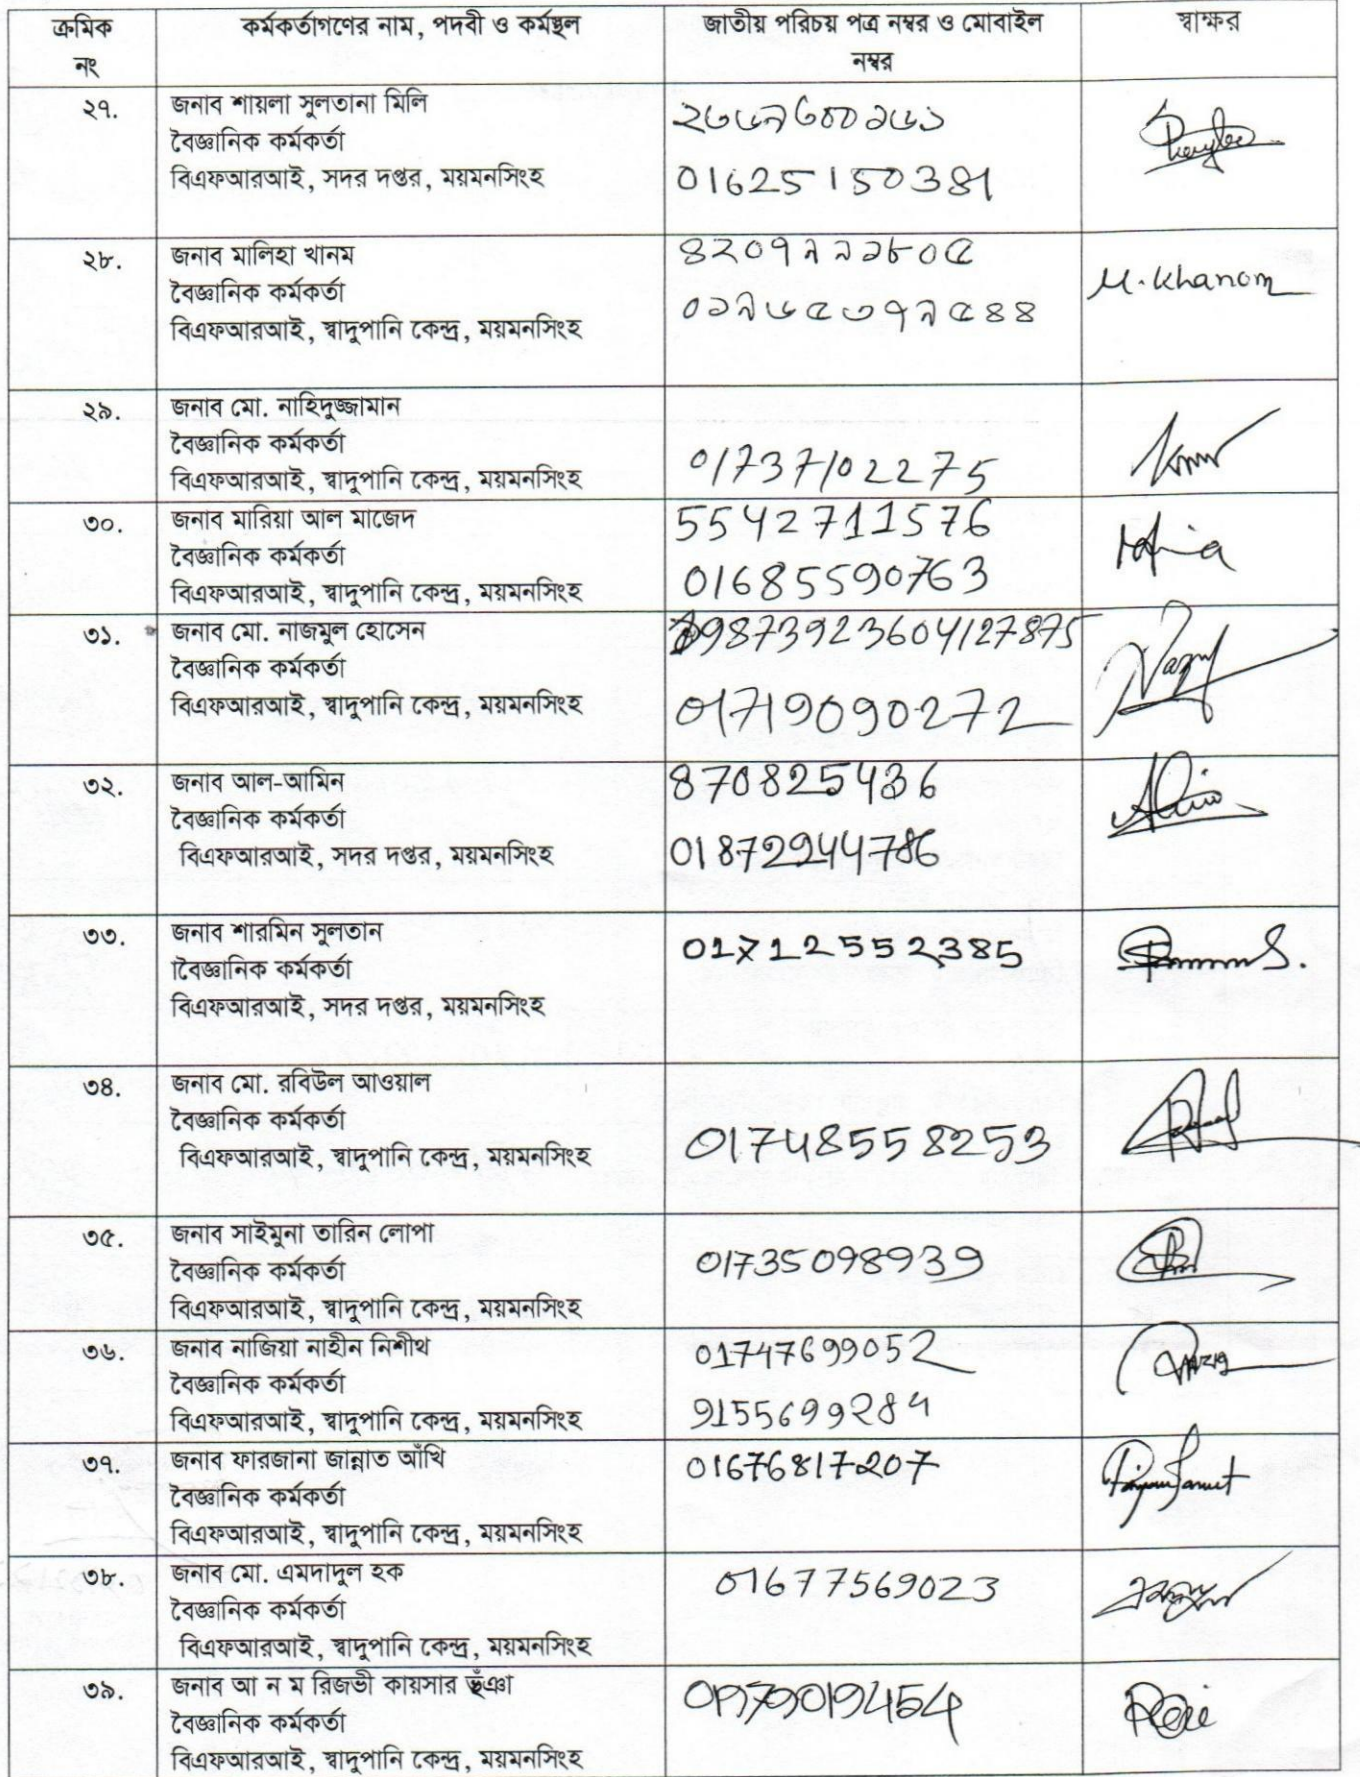 ক্রমিক নং
কর্মকর্তাগণের নাম, পদবী ও কর্মস্থল
জাতীয় পরিচয় পত্র নম্বর ও মোবাইল
নম্বর
স্বাক্ষর
২৭.
জনাব শায়লা সুলতানা মিলি
বৈজ্ঞানিক কর্মকর্তা
বিএফআরআই, সদর দপ্তর, ময়মনসিংহ
01625150381
২৮.
জনাব মালিহা খানম
বৈজ্ঞানিক কর্মকর্তা
বিএফআরআই, স্বাদুপানি কেন্দ্র, ময়মনসিংহ
৪২০৭৯৯১৮০৫
০১৯৬৫৩৭৯৫৪৪
M. Khanom
২৯.
জনাব মো. নাহিদুজ্জামান
বৈজ্ঞানিক কর্মকর্তা
বিএফআরআই, স্বাদুপানি কেন্দ্র, ময়মনসিংহ
01737102275
৩০.
জনাব মারিয়া আল মাজেদ
বৈজ্ঞানিক কর্মকর্তা
বিএফআরআই, স্বাদুপানি কেন্দ্র, ময়মনসিংহ
5542711576
01685590763
৩১.
জনাব মো. নাজমুল হোসেন
বৈজ্ঞানিক কর্মকর্তা
বিএফআরআই, স্বাদুপানি কেন্দ্র, ময়মনসিংহ
01719090272
৩২.
জনাব আল-আমিন
বৈজ্ঞানিক কর্মকর্তা
বিএফআরআই, সদর দপ্তর, ময়মনসিংহ
870825436
01872944786
৩৩.
জনাব শারমিন সুলতান
াবৈজ্ঞানিক কর্মকর্তা
বিএফআরআই, সদর দপ্তর, ময়মনসিংহ
01712552385
৩৪.
জনাব মো. রবিউল আওয়াল
বৈজ্ঞানিক কর্মকর্তা
বিএফআরআই, স্বাদুপানি কেন্দ্র, ময়মনসিংহ
01748558253
৩৫.
জনাব সাইমুনা তারিন লোপা
বৈজ্ঞানিক কর্মকর্তা
বিএফআরআই, স্বাদুপানি কেন্দ্র, ময়মনসিংহ
01735098939
৩৬.
জনাব নাজিয়া নাহীন নিশীথ
বৈজ্ঞানিক কর্মকর্তা
বিএফআরআই, স্বাদুপানি কেন্দ্র, ময়মনসিংহ
01747699052
9155699284
৩৭.
জনাব ফারজানা জান্নাত আঁখি
বৈজ্ঞানিক কর্মকর্তা
বিএফআরআই, স্বাদুপানি কেন্দ্র, ময়মনসিংহ
01676817207
৩৮.
জনাব মো. এমদাদুল হক
বৈজ্ঞানিক কর্মকর্তা
বিএফআরআই, স্বাদুপানি কেন্দ্র, ময়মনসিংহ
01677569023
৩৯.
জনাব আ ন ম রিজভী কায়সার ভূঁঞা
বৈজ্ঞানিক কর্মকর্তা
বিএফআরআই, স্বাদুপানি কেন্দ্র, ময়মনসিংহ